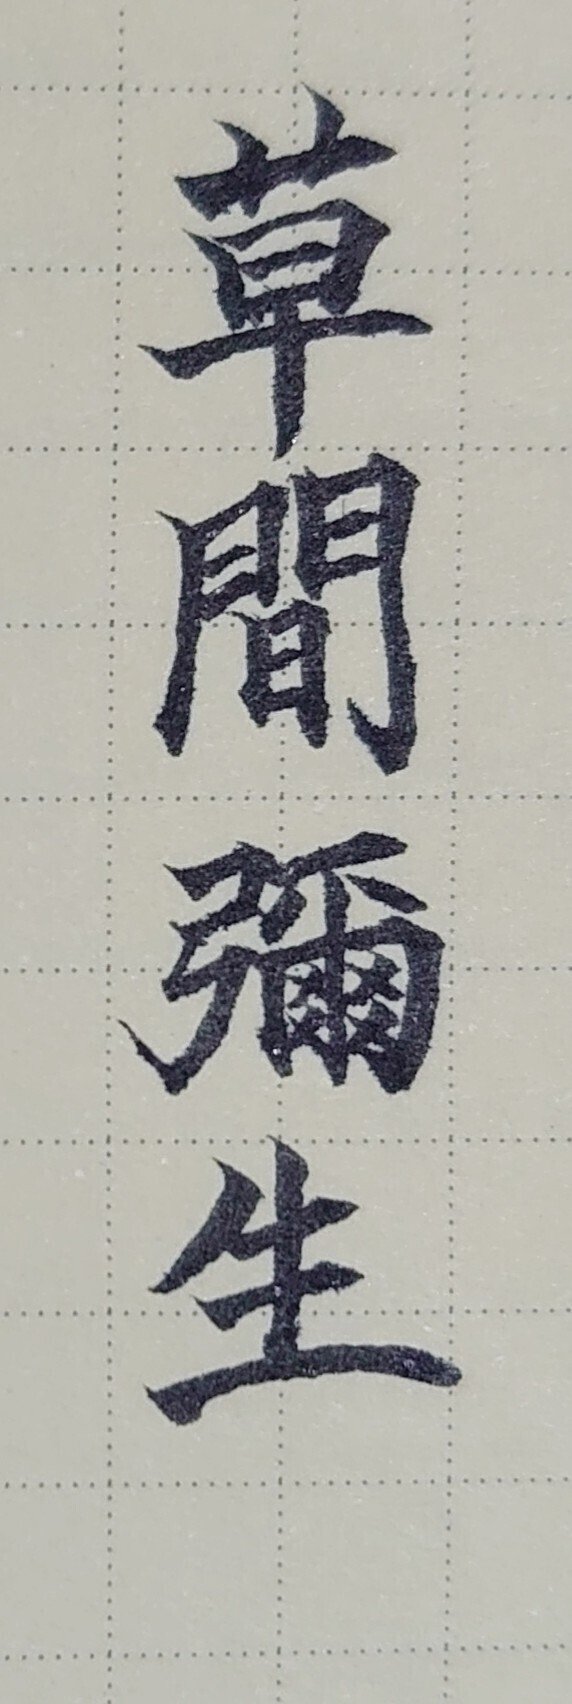 草間彌生